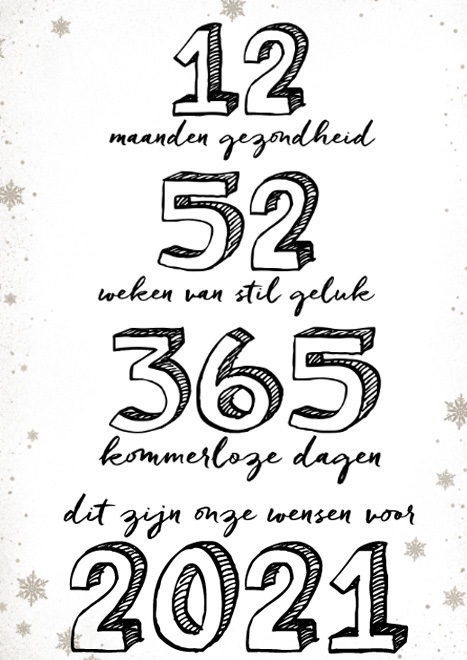 12
maanden gezondheid
52
weken van stil geluk
365
kommerloze dagen
dit zijn onze wensen voor
2021